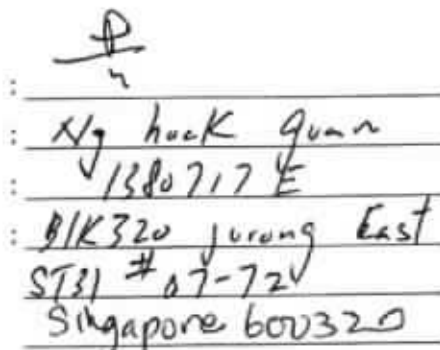 Ng hock Quan
1380717E
Blk320 jurong East
ST31 #07-72
Singapore 600320